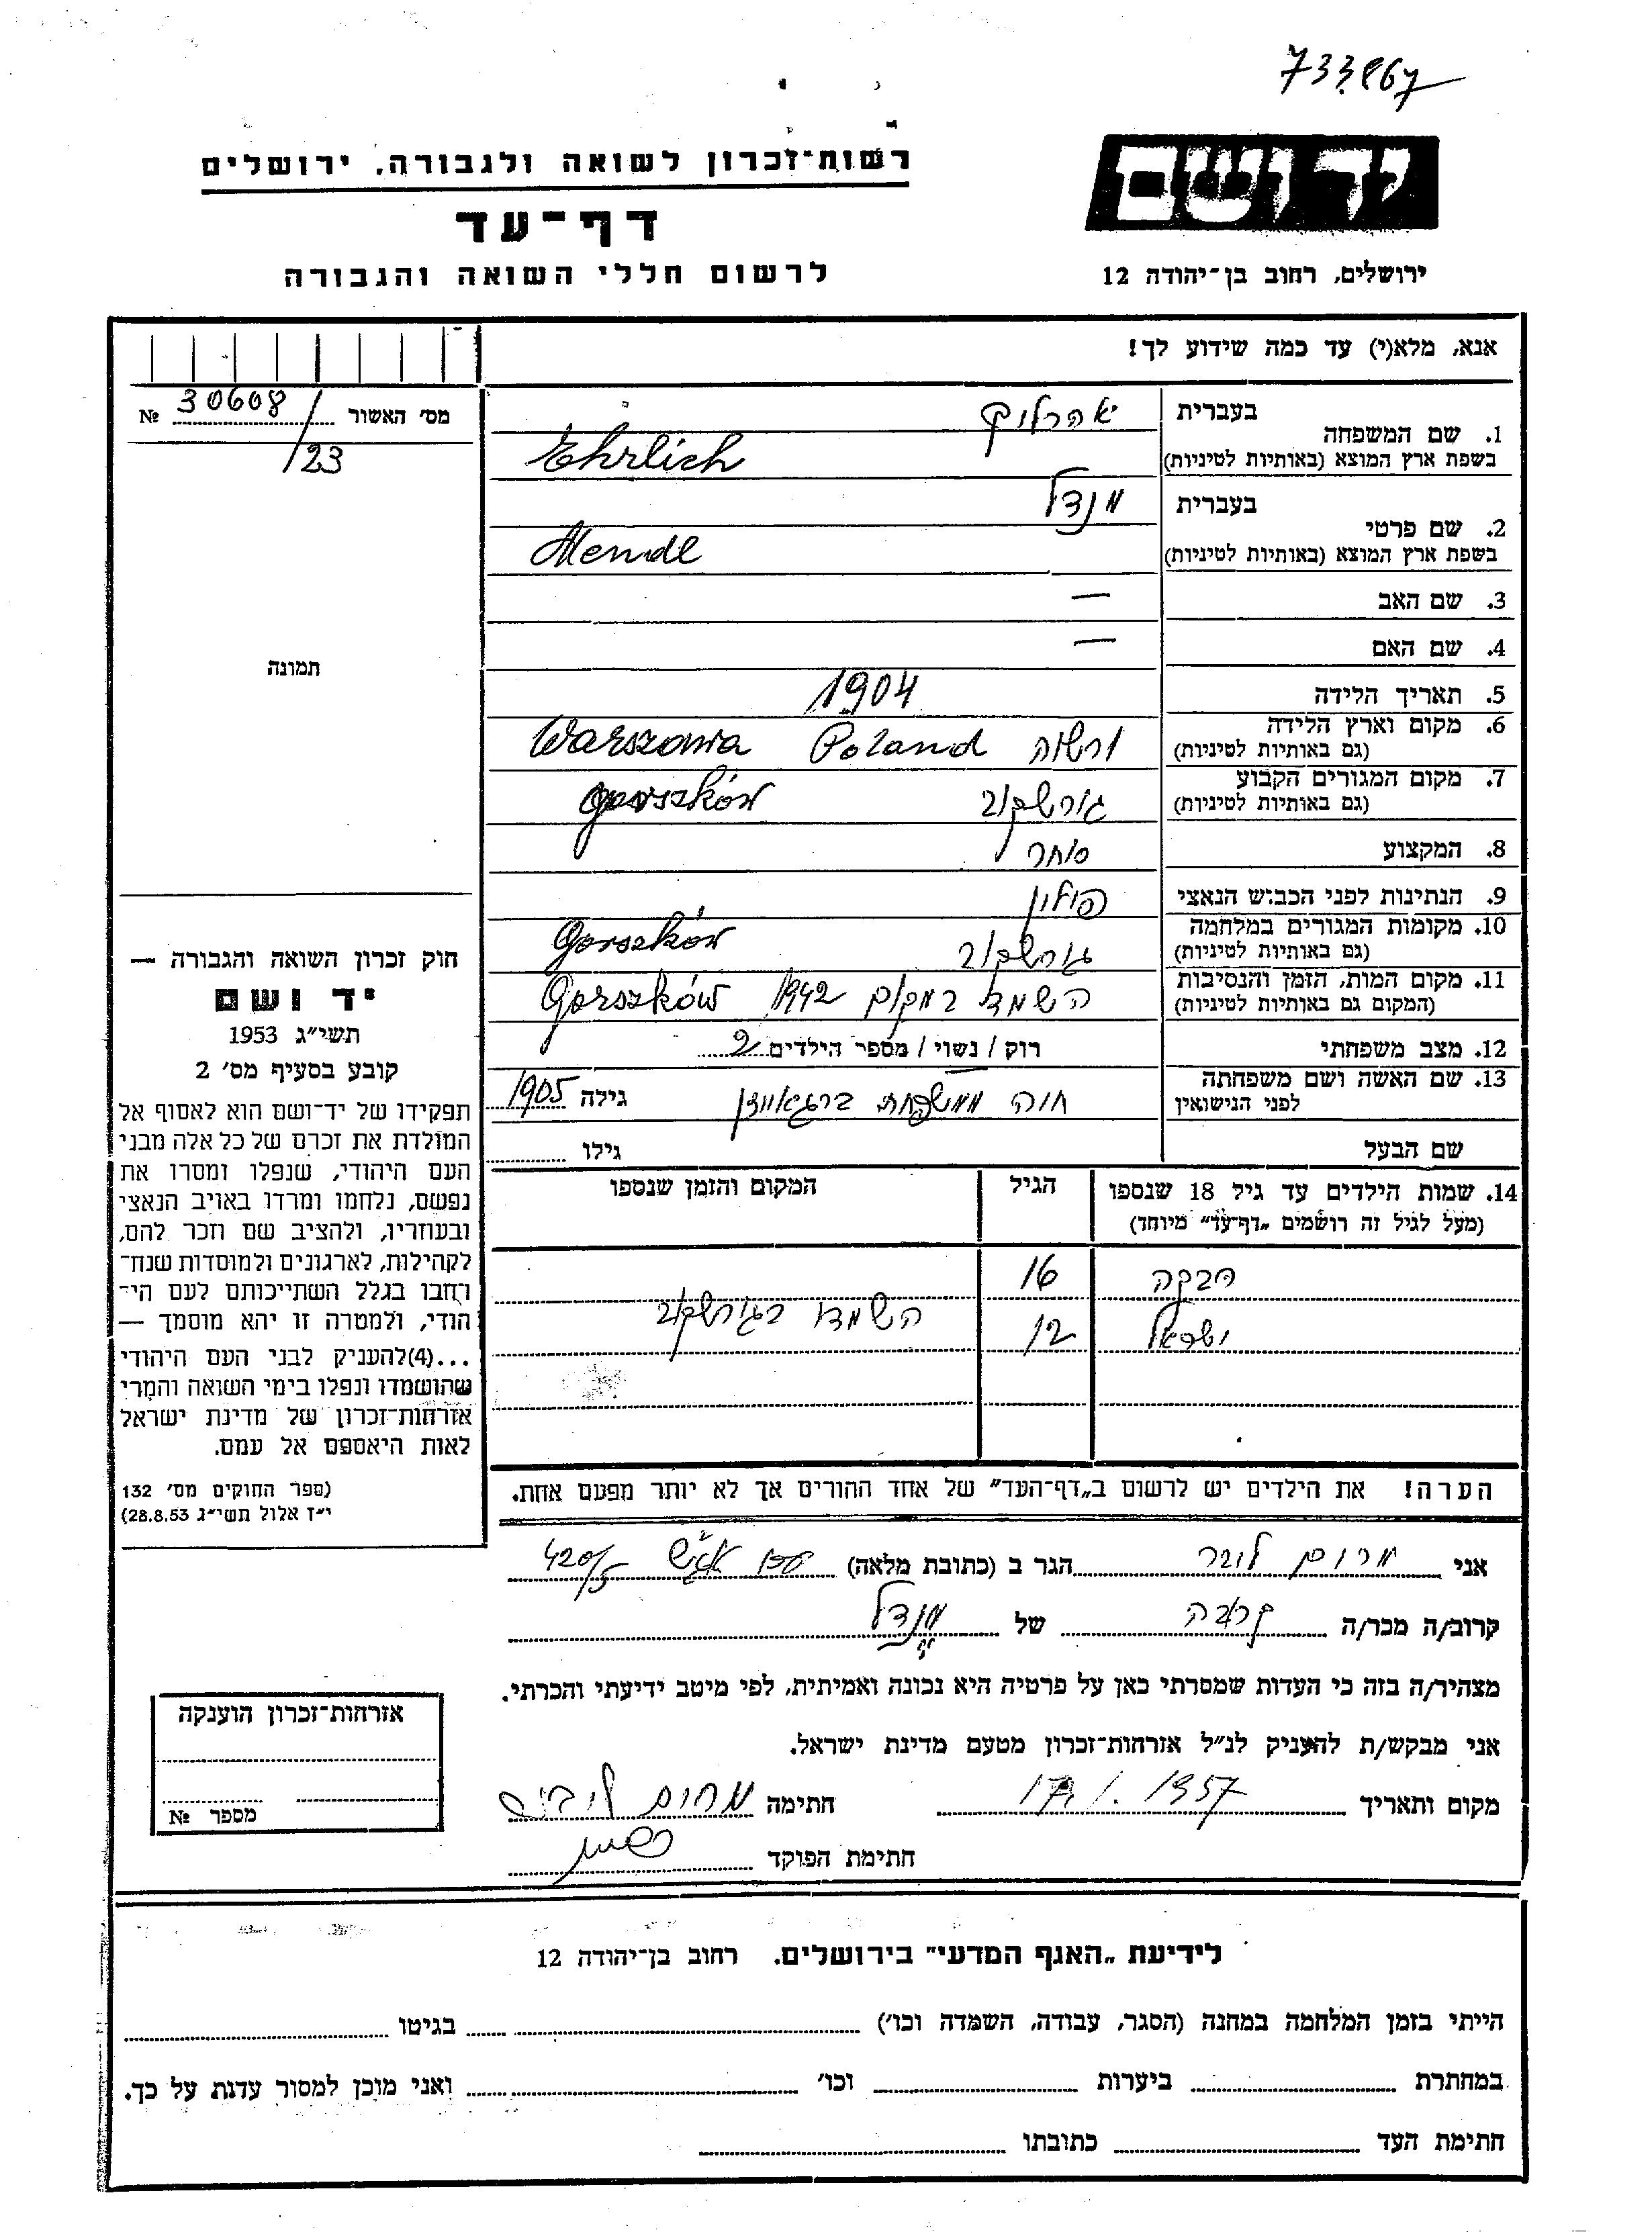 733867
יד ושם
ירושלים, רחוב בן־יהודה 12
רשות־זכרון לשואה ולגבורה, ירושלים
דף־עד
לרשום חללי השואה והגבורה
אנא, מלא(י) עד כמה שידוע לך!
מס' האשור 30608 №
/23
תמונה
חוק זכרון השואה והגבורה —
יד ושם
תשי"ג 1953
קובע בסעיף מס' 2
תפקידו של יד־ושם הוא לאסוף אל
המולדת את זכרם של כל אלה מבני
העם היהודי, שנפלו ומסרו את
נפשם, נלחמו ומרדו באויב הנאצי
ובעוזריו, ולהציב שם וזכר להם,
לקהילות, לארגונים ולמוסדות שנח־
רבו בגלל השתייכותם לעם הי־
הודי, ולמטרה זו יהא מוסמך —
...(4)להעניק לבני העם היהודי
שהושמדו ונפלו בימי השואה והמרי
אזרחות־זכרון של מדינת ישראל
לאות היאספם אל עמם.
(ספר החוקים מס' 132
י"ז אלול תשי"ג 28.8.53)
1. שם המשפחה
בעברית אהרליך
בשפת ארץ המוצא (באותיות לטיניות) Ehrlich
2. שם פרטי
בעברית מנדל
בשפת ארץ המוצא (באותיות לטיניות) Mendl
3. שם האב —
4. שם האם —
5. תאריך הלידה 1904
6. מקום וארץ הלידה
(גם באותיות לטיניות) ורשה Warszawa Poland
7. מקום המגורים הקבוע
(גם באותיות לטיניות) גורשקוב Gorszków
8. המקצוע סוחר
9. הנתינות לפני הכבוש הנאצי פולין
10. מקומות המגורים במלחמה
(גם באותיות לטיניות) גורשקוב Gorszków
11. מקום המות, הזמן והנסיבות
(המקום גם באותיות לטיניות) השמד במקום 1942 Gorszków
12. מצב משפחתי רוק / נשוי / מספר הילדים 2
13. שם האשה ושם משפחתה
לפני הנישואין חוה ממשפחת גילה 1905
שם הבעל גילו
14. שמות הילדים עד גיל 18 שנספו הגיל המקום והזמן שנספו
(מעל לגיל זה רושמים "דף־עד" מיוחד)
רבקה 16
ישראל 12 השמדו בגורשקוב
הערה! את הילדים יש לרשום ב"דף־העד" של אחד ההורים אך לא יותר מפעם אחת.
אני מרום הגר ב (כתובת מלאה) 420/5
קרוב/ה מכר/ה קרובה של מנדל
מצהיר/ה בזה כי העדות שמסרתי כאן על פרטיה היא נכונה ואמיתית, לפי מיטב ידיעתי והכרתי.
אני מבקש/ת להעניק לנ"ל אזרחות־זכרון מטעם מדינת ישראל.
מקום ותאריך 1957 חתימה מרום
חתימת הפוקד
אזרחות־זכרון הוענקה
מספר №
לידיעת "האגף המדעי" בירושלים. רחוב בן־יהודה 12
הייתי בזמן המלחמה במחנה (הסגר, עבודה, השמדה וכו') בגיטו
במחתרת ביערות וכו' ואני מוכן למסור עדות על כך.
חתימת העד כתובתו